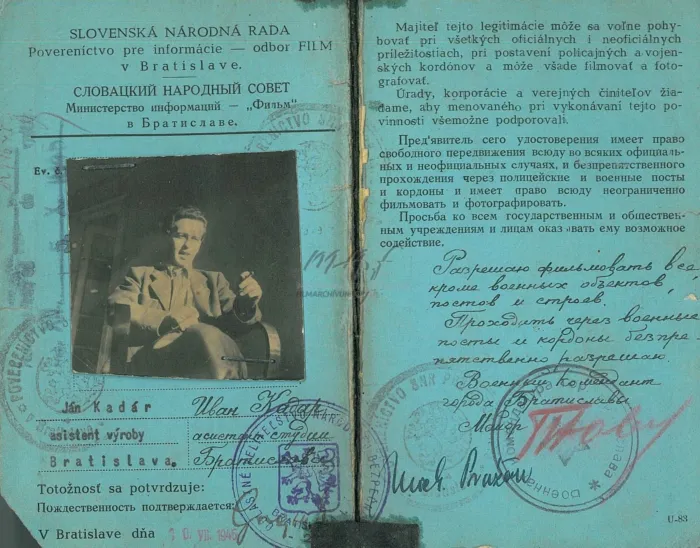 SLOVENSKÁ NÁRODNÁ RADA
Povereníctvo pre informácie — odbor FILM
v Bratislave.
СЛОВАЦКИЙ НАРОДНЫЙ СОВЕТ
Министерство информаций — „Фильм“
в Братиславе.
Ev. č.
Ján Kadár
Иван Кадар
asistent výroby
асистент студии
Bratislava.
Братислава
Totožnosť sa potvrdzuje:
Пождественность подтверждается:
V Bratislave dňa
10. VII. 1945
Majiteľ tejto legitimácie môže sa voľne pohy-
bovať pri všetkých oficiálnych i neoficiálnych
príležitostiach, pri postavení policajných a vojen-
ských kordónov a môže všade filmovať a foto-
grafovať.
Úrady, korporácie a verejných činiteľov žia-
dame, aby menovaného pri vykonávaní tejto po-
vinnosti všemožne podporovali.
Пред'явитель сего удостоверения имеет право
свободного передвижения всюду во всяких официаль-
ных и неофициальных случаях, и безпрепятственного
прохождения через полицейские и военные посты
и кордоны и имеет право всюду неограниченно
фильмовать и фотографировать.
Просьба ко всем государственным и обществен-
ным учреждениям и лицам оказывать ему возможное
содействие.
Разрешаю фильмовать все,
кроме военных объектов,
постов и строев.
Проходить через военные
посты и кордоны безпре-
пятственно разрешаю.
Военный комендант
города Братиславы
Майор
U-83